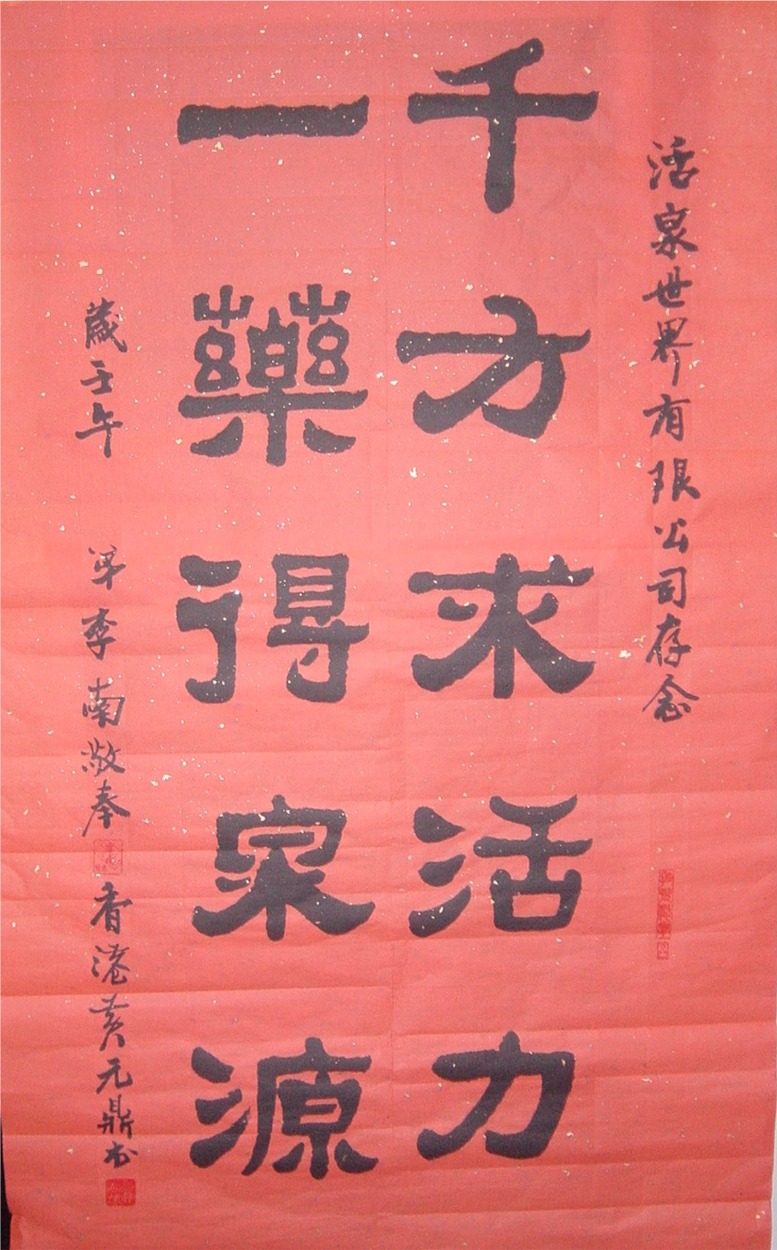 活泉世界有限公司存念
千方求活力
一藥得泉源
歲壬午
弟李南敬奉
香港黃元鼎书